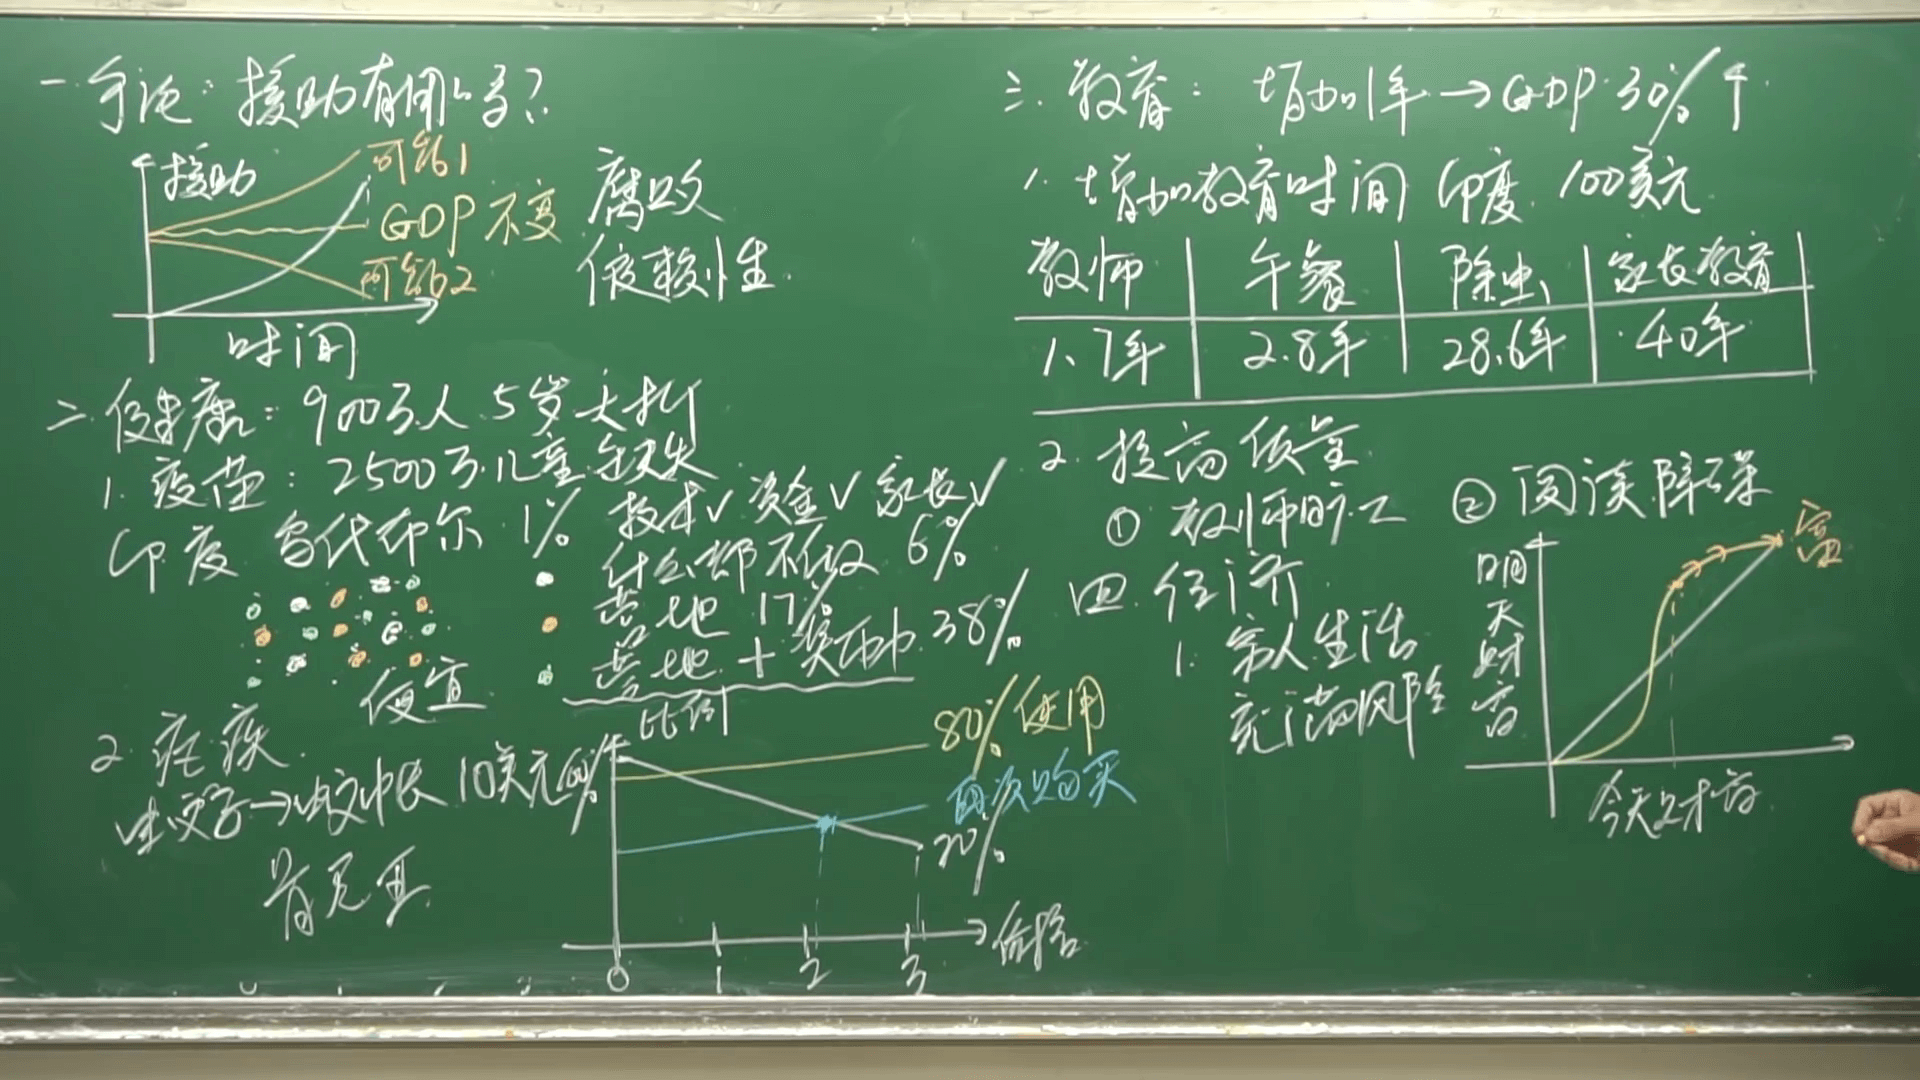 一. 争论: 援助有用吗?
援助
可能1
GDP 不变
可能2
时间
腐败
依赖性.
二. 健康: 900万人 5岁夭折
1. 疫苗: 2500万儿童缺失
技术√ 资金√ 家长√
印度 乌代布尔 1%
什么都不做 6%
营地 17%
营地 + 奖品 38%
便宜
2. 疟疾.
蚊子→蚊帐 10美元
肯尼亚
比例
80% 使用
再次购买
20%
0 1 2 3
价格
三. 教育: 增加1年 → GDP 30%↑
1. 增加教育时间 印度 100美元
教师 午餐 除虫 家长教育
1.7年 2.8年 28.6年 40年
2. 提高质量
① 教师旷工
② 阅读障碍
四. 经济
1. 穷人生活
充满风险
明天财富
富
今天财富